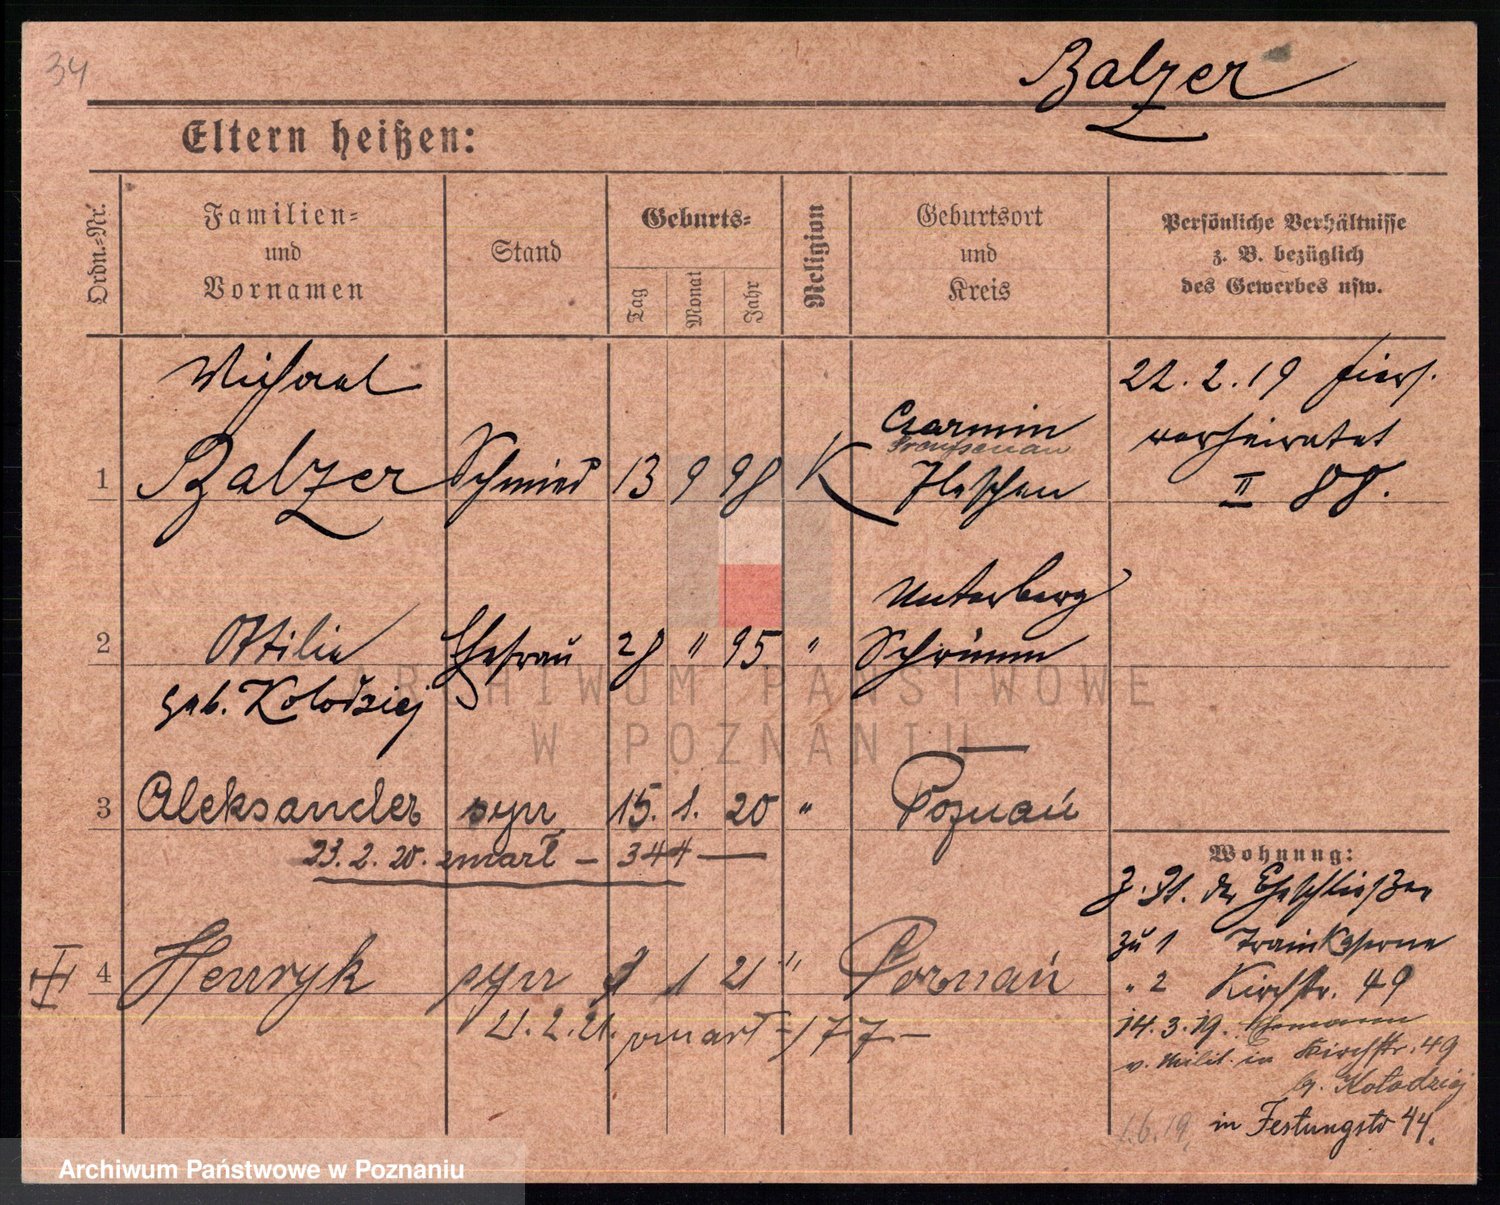 34
Balzer
Eltern heißen:
Ordn.-Nr.
Familien-
und
Vornamen
Stand
Geburts-
Tag
Monat
Jahr
Religion
Geburtsort
und
Kreis
Persönliche Verhältnisse
z. B. bezüglich
des Gewerbes usw.
Michael
1 Balzer Schmied 13 9 98 K
Czarmin
Pleschen
22.2.19 hiers.
verheiratet
II 88.
2 Ottilie Ehefrau 28 " 95 "
geb. Kolodziej
Unterberg
Schrimm
3 Aleksander syn 15. 1. 20 " Poznań
23. 2. 20. zmarł – 344 —
4 Henryk syn 1 21 " Poznań
21.2.21. zmarł - 177 –
Wohnung:
z. Zt. der Eheschließung
zu 1 Trainkaserne
" 2 Kirchstr. 49
14.3.19. Ehemann
v. Milit. in Kirchstr. 49
b. Kolodziej
1.6.19, in Festungstr 44.
ARCHIWUM PAŃSTWOWE
W POZNANIU
Archiwum Państwowe w Poznaniu